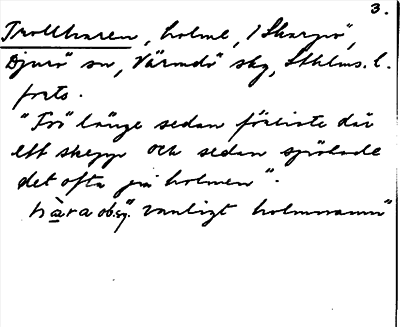 3.
Trollharen, holme, i Skarpö,
Djurö sn, Värmdö skg, Sthlms. l.
forts.
"För länge sedan förliste där
ett skepp och sedan spökade
det ofta på holmen".
hàra obs. vanligt holmnamn